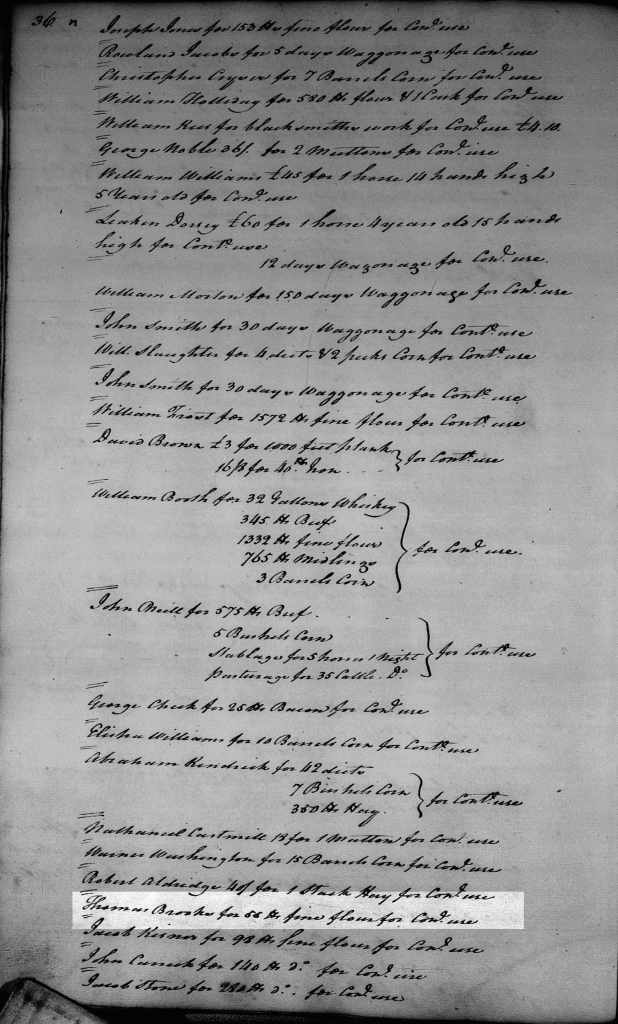 36
Joseph Jones for 153 lb fine flour for Cont. use
Rowland Jacobs for 5 days Waggonage for Cont. use
Christopher for 7 Barrels Corn for Cont. use
William Holliday for 580 lb flour & 1 Cask for Cont. use
William Kerr for blacksmiths work for Cont. use £4.10.
George Noble 36/. for 2 Muttons for Cont. use
William Williams £45 for 1 horse 14 hands high
5 Years old for Cont. use
Dorsey £60 for 1 horse 4 years old 15 hands
high for Contl. use
12 days Wagonage for Cont. use.
William Morton for 150 days Waggonage for Cont. use
John Smith for 30 days Waggonage for Contl. use
Will. Slaughter for 4 diets & 2 pecks Corn for Contl. use
John Smith for 30 days Waggonage for Contl. use
William Frost for 1572 lb fine flour for Contl. use
David Brown £3 for 1000 feet plank
16/8 for 40 lb. Iron for Contl. use
William Booth for 32 Gallons Whiskey
345 lb Beef
1332 lb fine flour for Cont. use.
765 lb Midlings
3 Barrels Corn
John Neill for 575 lb Beef.
5 Bushels Corn
Stablage for 5 horses 1 Night for Contl. use
pasturage for 35 Cattle Do.
George Cheek for 25 lb Bacon for Cont. use
Elisha Williams for 10 Barrels Corn for Contl. use
Abraham Kendrick for 42 diets
7 Bushels Corn for Contl. use
350 lb Hay.
Nathaniel Cartmill for 1 Mutton for Cont. use
Warner Washington for 15 Barrels Corn for Cont. use
Robert Aldridge for 1 Stack Hay for Cont. use
Thomas Brooks for 55 lb fine flour for Cont. use
Jacob for 98 lb fine flour for Cont. use
John for 140 lb do. for Cont. use
Jacob Stone for 280 lb do. for Cont. use